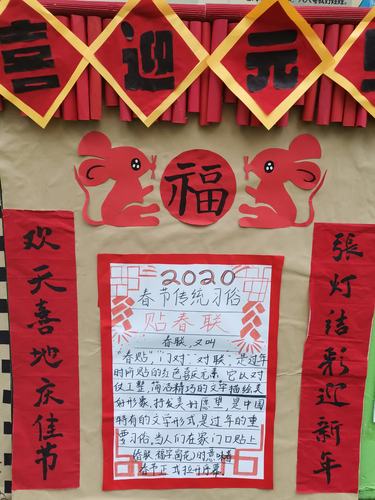 喜迎元
福
欢天喜地庆佳节
張灯结彩迎新年
2020
春节传统习俗
贴春联
春联,又叫
"春贴"、门对"对联",是过年
时所贴的红色喜庆元素,它以对
仗工整,简洁精巧的文字描绘美
好形象,抒发美好愿望,是中国
特有的文字形式是过年的重
要习俗,当人们在家门口贴上
春节正式拉开序幕